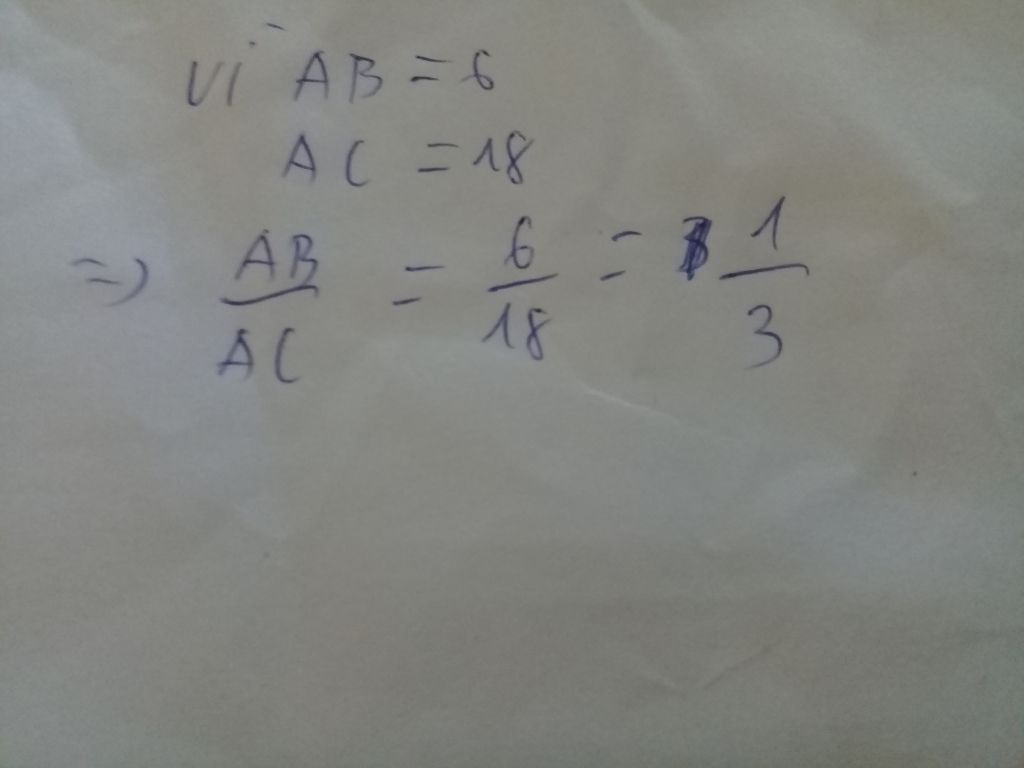 Vì AB = 6
AC = 18
=> AB/AC = 6/18 = 1/3